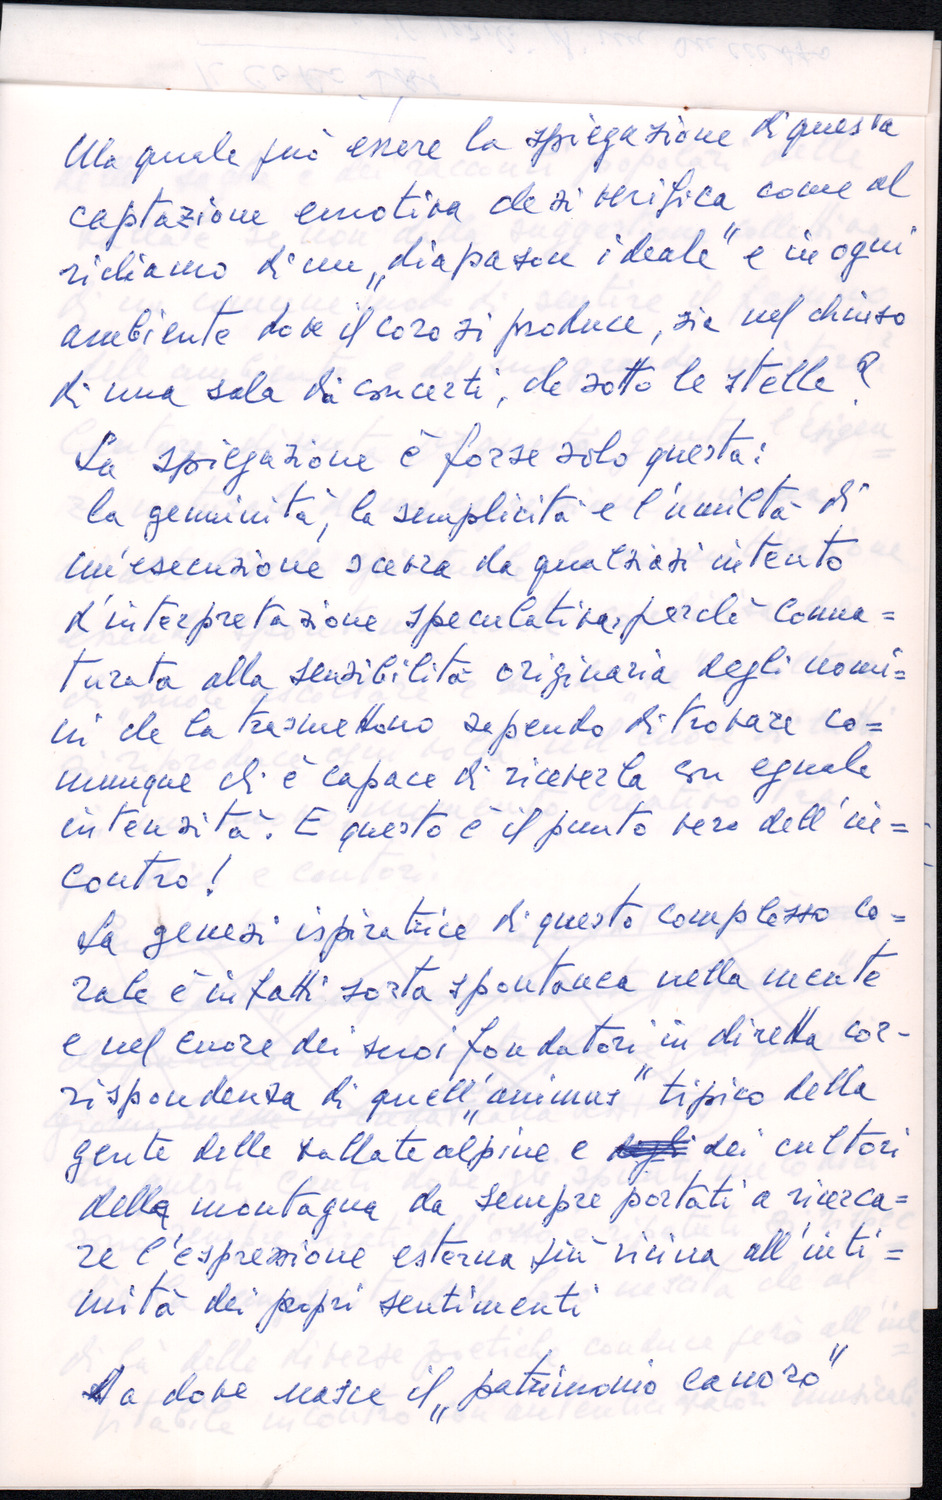 Ma quale può essere la spiegazione di questa
captazione emotiva che si verifica come al
richiamo di un „diapason ideale" e in ogni
ambiente dove il coro si produce, sia nel chiuso
di una sala di concerti, che sotto le stelle?
La spiegazione è forse solo questa:
la genuinità, la semplicità e l'umiltà di
un'esecuzione scevra da qualsiasi intento
d'interpretazione speculativa, perchè conna=
turata alla sensibilità originaria degli uomi=
ni che la trasmettono sapendo di trovare co=
munque chi è capace di riceverla con eguale
intensità. E questo è il punto vero dell'in=
contro!
La genesi ispiratrice di questo complesso co=
rale è infatti sorta spontanea nella mente
e nel cuore dei suoi fondatori in diretta cor-
rispondenza di quell'„animus" tipico della
gente delle vallate alpine e dei cultori
della montagna da sempre portati a ricerca=
re l'espressione esterna più vicina all'inti=
mità dei propri sentimenti
Da dove nasce il „patrimonio canoro"